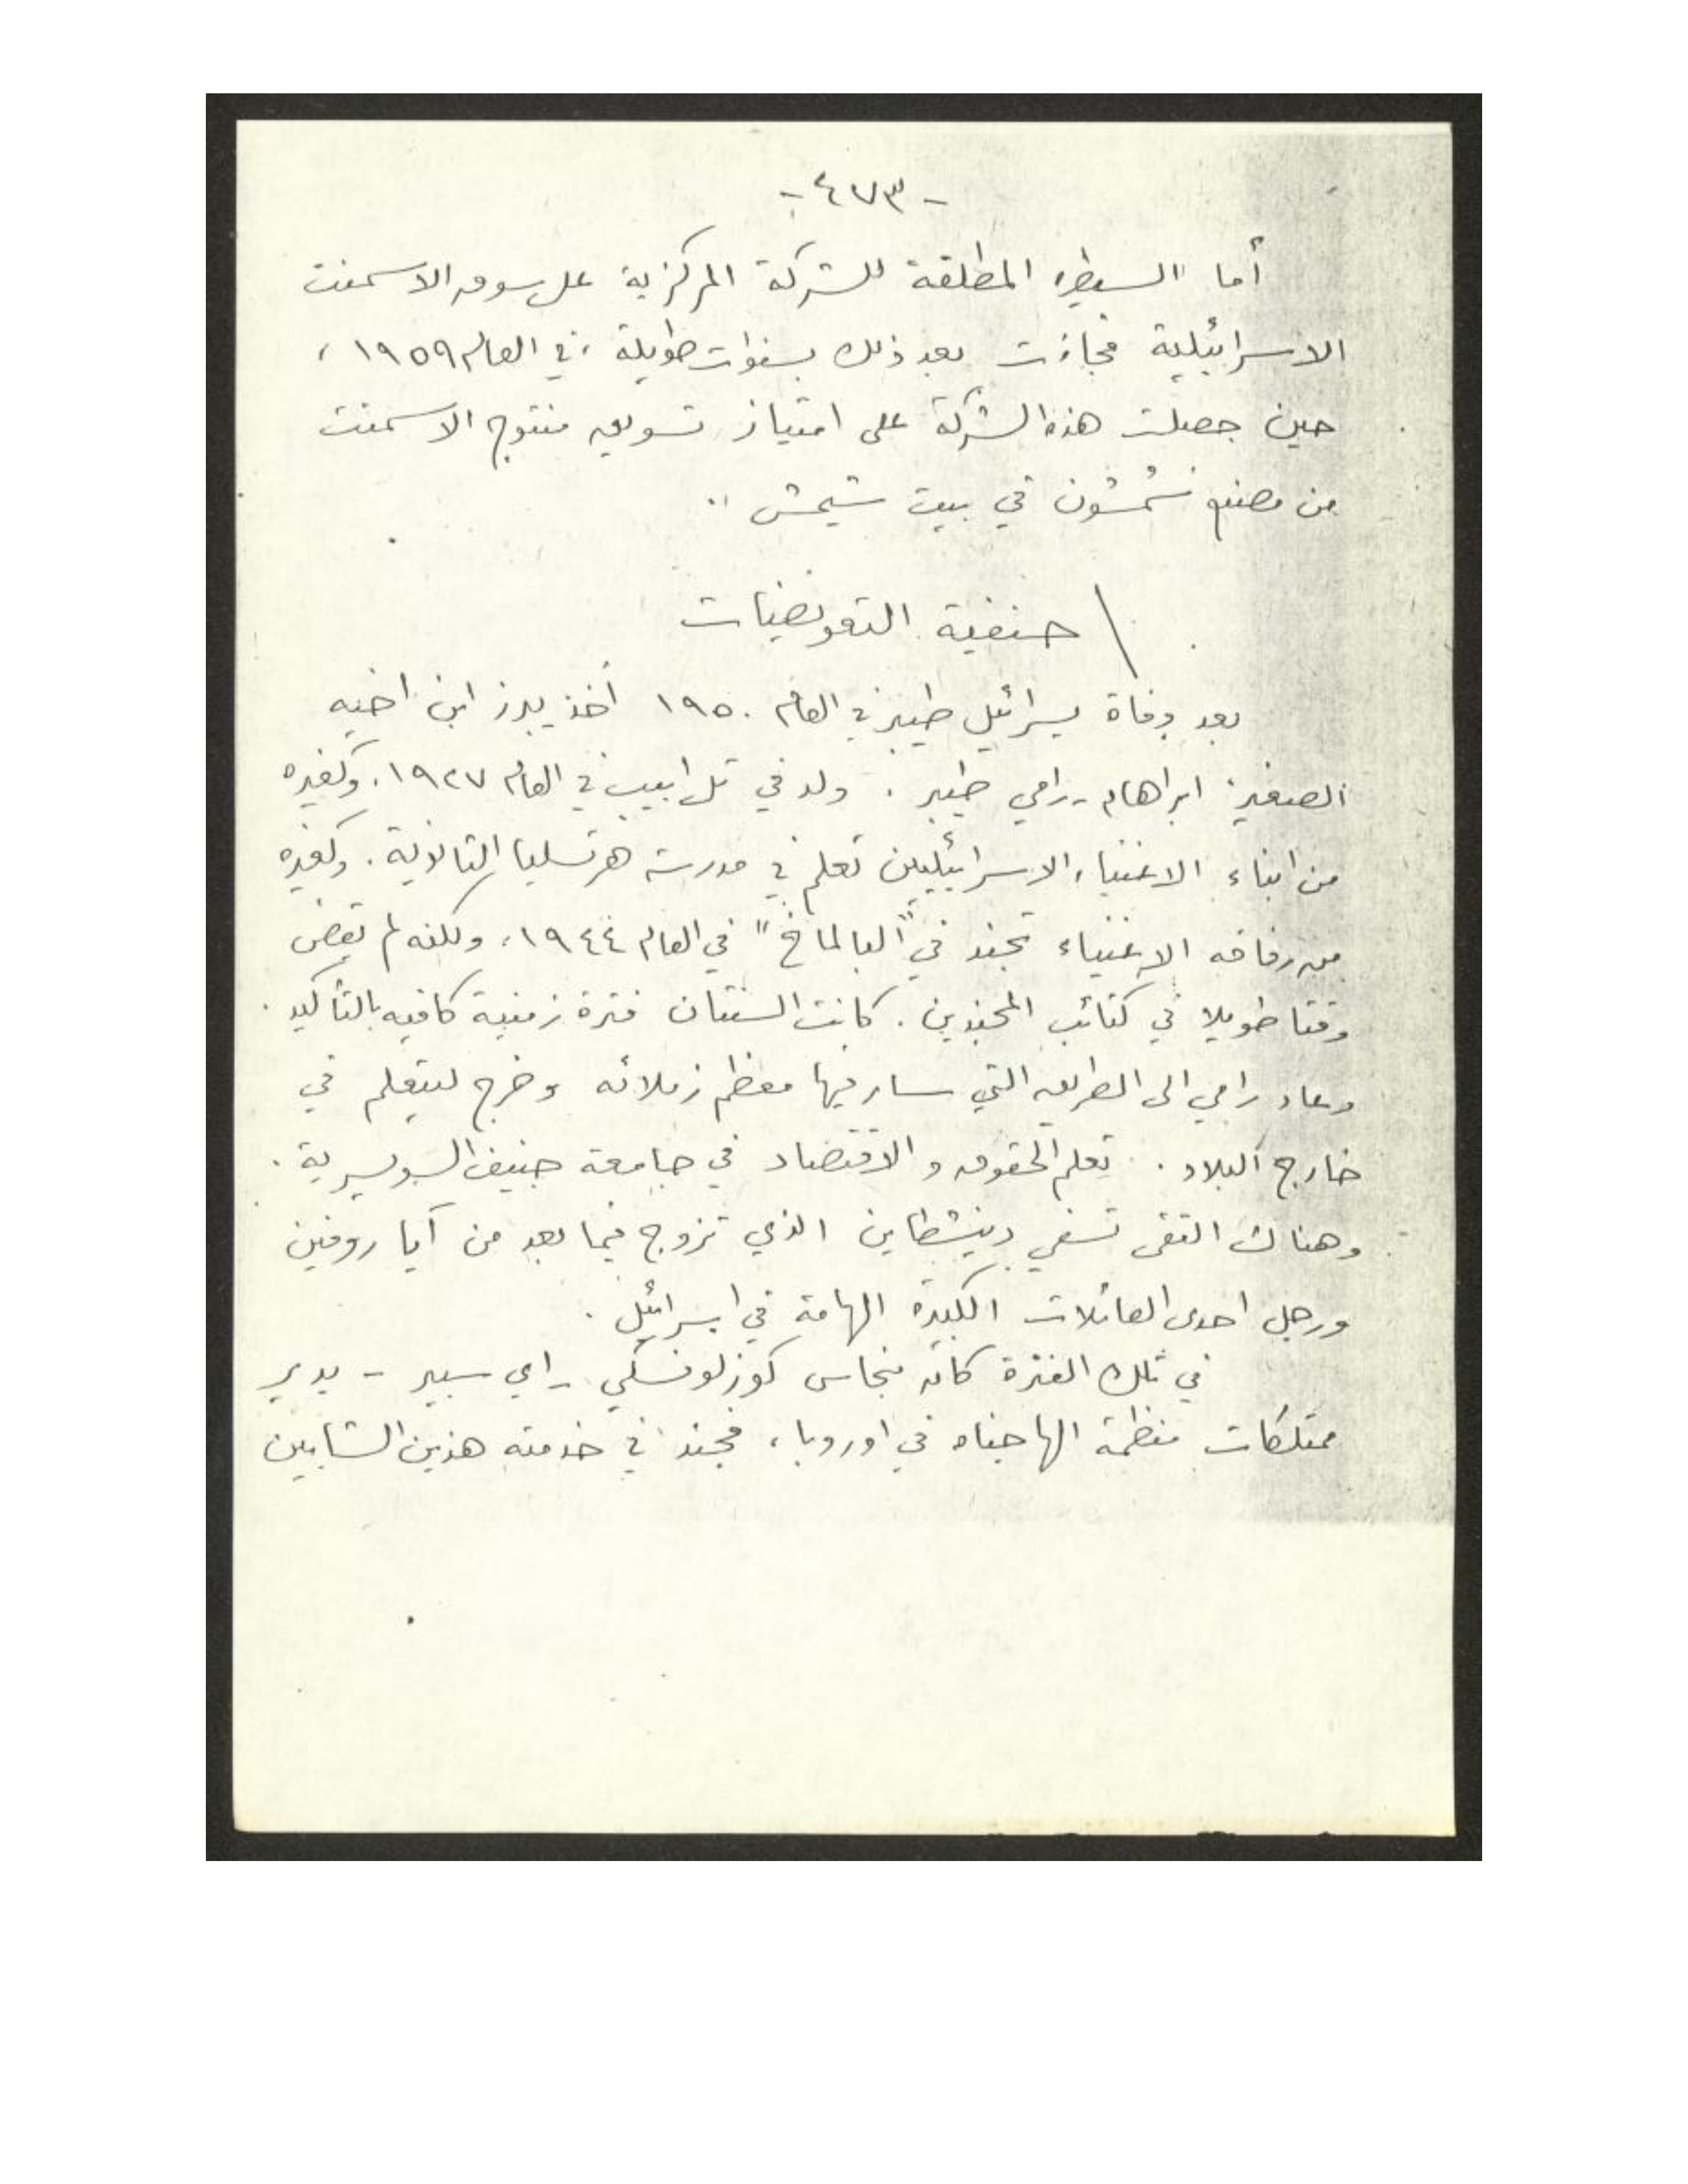 - ٤٧٣ -
أما السيطره المطلقة للشركة المركزية على سوق الاسمنت
الاسرائيلية فجاءت بعد ذلك بسنوات طويلة ، في العام ١٩٥٩ ،
حين حصلت هذه الشركة على امتياز تسويق منتوج الاسمنت
من مصنع شمشون في بيت شيمش ..
حنفية التعويضات
بعد وفاة يسرائيل طيبر في العام ١٩٥٠ أخذ يبرز ابن اخيه
الصغير ابراهام - رامي طيبر . ولد في تل ابيب في العام ١٩٢٧ . وكغيره
من ابناء الاغنياء الاسرائيليين تعلم في مدرسة هرتسليا الثانوية . وكغيره
من رفاقه الاغنياء تجند في "البالماخ" في العام ١٩٤٤ ، ولكنه لم يمض
وقتا طويلا في كتائب المجندين . كانت السنتان فترة زمنية كافيه بالتأكيد .
وعاد رامي الى الطريق التي سار فيها معظم زملائه وخرج ليتعلم في
خارج البلاد . تعلم الحقوق والاقتصاد في جامعة جنيف السويسرية .
وهناك التقى تسفي دينشطاين الذي تزوج فيما بعد من آيا روفين
ورجل احدى العائلات الكبيرة الهامة في اسرائيل .
في تلك الفترة كان بنحاس كوزلوفسكي - سبير - يدير
ممتلكات منظمة الهاجناه في اوروبا ، فجند في خدمته هذين الشابين